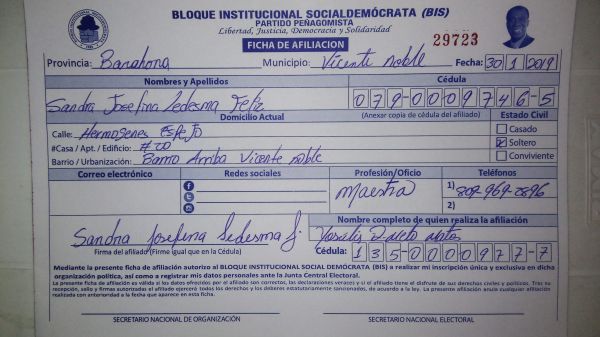 BLOQUE INSTITUCIONAL SOCIALDEMÓCRATA (BIS)
PARTIDO PEÑAGOMISTA
Libertad, Justicia, Democracia y Solidaridad
FICHA DE AFILIACION
29723
Provincia: Barahona Municipio: Vicente Noble Fecha: 30/1/2019
Nombres y Apellidos Cédula
Sandra Josefina Ledesma Feliz 079-0009746-5
Domicilio Actual (Anexar copia de cédula del afiliado) Estado Civil
Calle: Hermogenes Casado
#Casa / Apt. / Edificio: #20 Soltero
Barrio / Urbanización: Barrio Arriba Vicente Noble Conviviente
Correo electrónico Redes sociales Profesión/Oficio Teléfonos
Maestra 1) 809-969-2896
2)
Nombre completo de quien realiza la afiliación
Sandra Josefina Ledesma f.
Firma del afiliado (Firme igual que en la Cédula) Cédula: 135-0000977-7
Mediante la presente ficha de afiliación autorizo al BLOQUE INSTITUCIONAL SOCIAL DEMÓCRATA (BIS) a realizar mi inscripción única y exclusiva en dicha
organización política, así como a registrar mis datos personales ante la Junta Central Electoral.
La presente ficha de afiliación es válida si los datos ofrecidos por el afiliado son correctos, las declaraciones veraces y si el afiliado tiene el disfrute de sus derechos civiles y políticos. Tras su
recepción, sello y firmas autorizadas el afiliado ejercerá todos los derechos y los deberes estatutariamente sancionados, de acuerdo a la ley. La presente afiliación anula cualquier afiliación
realizada con anterioridad a la fecha que aparece en esta ficha.
SECRETARIO NACIONAL DE ORGANIZACIÓN SECRETARIO NACIONAL ELECTORAL